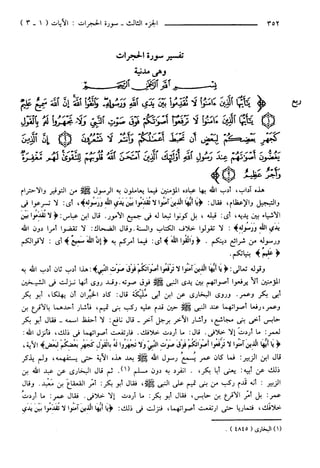 ٣٥٢ الجزء الثالث - سورة الحجرات : الآيات ( ١ - ٣ )
تفسير سورة الحجرات
وهى مدنية
بسم الله الرحمن الرحيم
ربع
﴿ يَا أَيُّهَا الَّذِينَ آمَنُوا لَا تُقَدِّمُوا بَيْنَ يَدَيِ اللَّهِ وَرَسُولِهِ وَاتَّقُوا اللَّهَ إِنَّ اللَّهَ سَمِيعٌ عَلِيمٌ
يَا أَيُّهَا الَّذِينَ آمَنُوا لَا تَرْفَعُوا أَصْوَاتَكُمْ فَوْقَ صَوْتِ النَّبِيِّ وَلَا تَجْهَرُوا لَهُ بِالْقَوْلِ
كَجَهْرِ بَعْضِكُمْ لِبَعْضٍ أَن تَحْبَطَ أَعْمَالُكُمْ وَأَنتُمْ لَا تَشْعُرُونَ ۝ إِنَّ الَّذِينَ
يَغُضُّونَ أَصْوَاتَهُمْ عِندَ رَسُولِ اللَّهِ أُولَٰئِكَ الَّذِينَ امْتَحَنَ اللَّهُ قُلُوبَهُمْ لِلتَّقْوَىٰ لَهُم مَّغْفِرَةٌ
وَأَجْرٌ عَظِيمٌ ۝ ﴾
هذه آداب، أدب الله بها عباده المؤمنين فيما يعاملون به الرسول ﷺ من التوقير والاحترام
والتبجيل والإعظام، فقال: ﴿يا أيها الذين آمنوا لا تقدموا بين يدي الله ورسوله﴾، أى: لا تسرعوا فى
الأشياء بين يديه، أى: قبله ، بل كونوا تبعا له فى جميع الأمور. قال ابن عباس: ﴿لا تقدموا بين
يدي الله ورسوله﴾ : لا تقولوا خلاف الكتاب والسنة. وقال الضحاك: لا تقضوا أمرا دون الله
ورسوله من شرائع دينكم . ﴿واتقوا الله﴾ أى: فيما أمركم به ﴿إن الله سميع﴾ أى : لأقوالكم
﴿ عليم﴾ بنياتكم.
وقوله تعالى: ﴿يا أيها الذين آمنوا لا ترفعوا أصواتكم فوق صوت النبي﴾: هذا أدب ثان أدب الله به
المؤمنين ألا يرفعوا أصواتهم بين يدى النبى ﷺ فوق صوته. وقد روى أنها نزلت فى الشيخين
أبى بكر وعمر. وروى البخارى عن ابن أبى مليكة قال: كاد الخيران أن يهلكا، أبو بكر
وعمر، رفعا أصواتهما عند النبى ﷺ حين قدم عليه ركب بنى تميم، فأشار أحدهما بالأقرع بن
حابس أخى بنى مجاشع، وأشار الآخر برجل آخر ـ قال نافع: لا أحفظ اسمه ـ فقال أبو بكر
لعمر: ما أردت إلا خلافى. قال: ما أردت خلافك. فارتفعت أصواتهما فى ذلك، فأنزل الله:
﴿يا أيها الذين آمنوا لا ترفعوا أصواتكم فوق صوت النبي ولا تجهروا له بالقول كجهر بعضكم لبعض﴾ الآية،
قال ابن الزبير: فما كان عمر يسمع رسول الله ﷺ بعد هذه الآية حتى يستفهمه، ولم يذكر
ذلك عن أبيه: يعنى أبا بكر، . انفرد به دون مسلم (١). ثم قال البخارى عن عبد الله بن
الزبير : أنه قدم ركب من بنى تميم على النبى ﷺ، فقال أبو بكر: أمر القعقاع بن معبد. وقال
عمر: بل أمر الأقرع بن حابس، فقال أبو بكر: ما أردت إلا خلافى. فقال عمر: ما أردت
خلافك، فتماريا حتى ارتفعت أصواتهما، فنزلت فى ذلك: ﴿يا أيها الذين آمنوا لا تقدموا بين يدي
(١) البخارى ( ٤٨٤٥ ) .